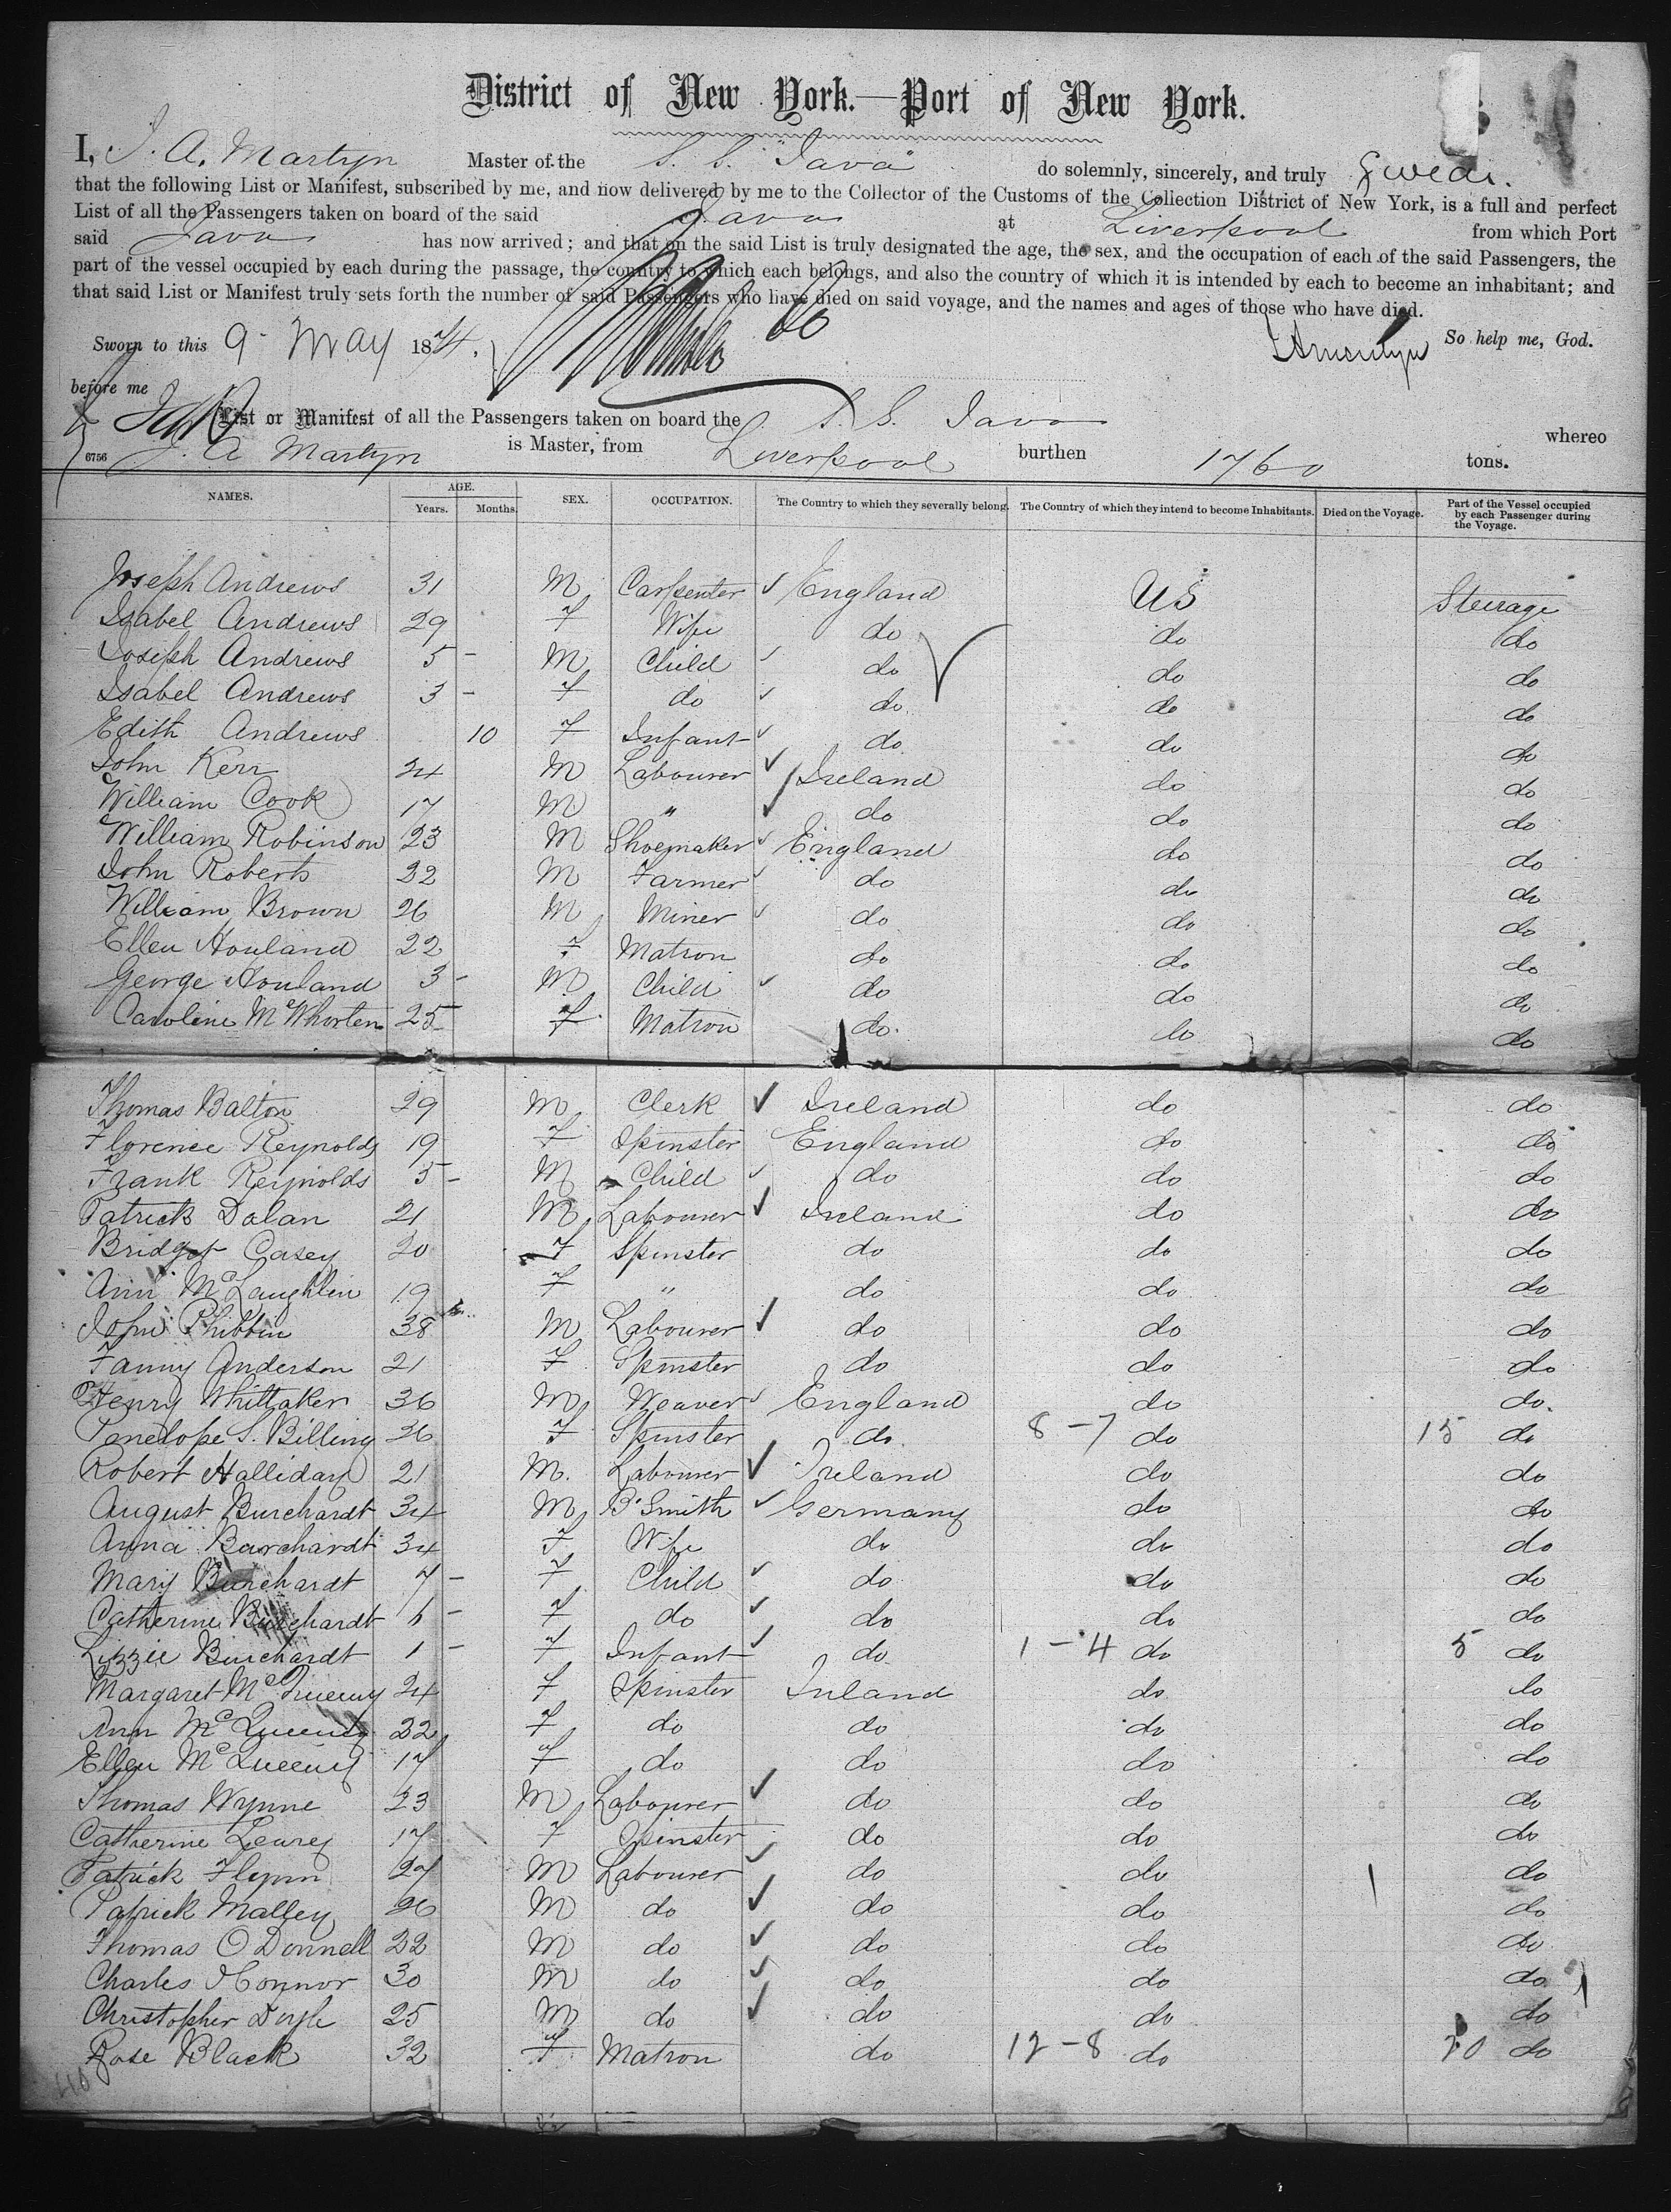 District of New York.—Port of New York.
I, J. A. Martyn Master of the S. S. "Java" do solemnly, sincerely, and truly Swear.
that the following List or Manifest, subscribed by me, and now delivered by me to the Collector of the Customs of the Collection District of New York, is a full and perfect
List of all the Passengers taken on board of the said Java at Liverpool from which Port
said Java has now arrived; and that on the said List is truly designated the age, the sex, and the occupation of each of the said Passengers, the
part of the vessel occupied by each during the passage, the country to which each belongs, and also the country of which it is intended by each to become an inhabitant; and
that said List or Manifest truly sets forth the number of said Passengers who have died on said voyage, and the names and ages of those who have died.
Sworn to this 9 May 1874. JAMartyn So help me, God.
before me
List or Manifest of all the Passengers taken on board the S. S. Java whereo
6756 J. A Martyn is Master, from Liverpool burthen 1760 tons.
NAMES. AGE. Years. Months. SEX. OCCUPATION. The Country to which they severally belong. The Country of which they intend to become Inhabitants. Died on the Voyage. Part of the Vessel occupied by each Passenger during the Voyage.
Joseph Andrews 31 M Carpenter England US Steerage
Isabel Andrews 29 F Wife do do do
Joseph Andrews 5 - M Child do do do
Isabel Andrews 3 - F do do do do
Edith Andrews 10 F Infant do do do
John Kerr 24 M Labourer Ireland do do
William Cook 17 M " do do do
William Robinson 23 M Shoemaker England do do
John Roberts 32 M Farmer do do do
William Brown 26 M Miner do do do
Ellen Houland 22 F Matron do do do
George Houland 3 - M Child do do do
Caroline McWhorten 25 F Matron do do do
Thomas Balton 29 M Clerk Ireland do do
Florence Reynolds 19 F Spinster England do do
Frank Reynolds 5 - M Child do do do
Patrick Dolan 21 M Labourer Ireland do do
Bridget Casey 20 F Spinster do do do
Ann McLaughlin 19 F " do do do
John Philbin 38 M Labourer do do do
Fanny Anderson 21 F Spinster do do do
Henry Whittaker 36 M Weaver England do do
Penelope S. Billing 36 F Spinster do 8 - 7 do 15 do
Robert Halliday 21 M. Labourer Ireland do do
August Burchardt 34 M B'Smith Germany do do
Anna Burchardt 34 F Wife do do do
Mary Burchardt 7 - F Child do do do
Catherine Burchardt 6 - F do do do do
Lizzie Burchardt 1 - F Infant do 1 - 4 do 5 do
Margaret McQueeny 24 F Spinster Ireland do do
Ann McQueeny 22 F do do do do
Ellen McQueeny 17 F do do do do
Thomas Wynne 23 M Labourer do do do
Catherine Leurey 17 F Spinster do do do
Patrick Flynn 27 M Labourer do do do
Patrick Malley 26 M do do do do
Thomas O Donnell 22 M do do do do
Charles OConnor 30 M do do do do
Christopher Doyle 25 M do do do do
Rose Black 32 F Matron do 12 - 8 do 20 do